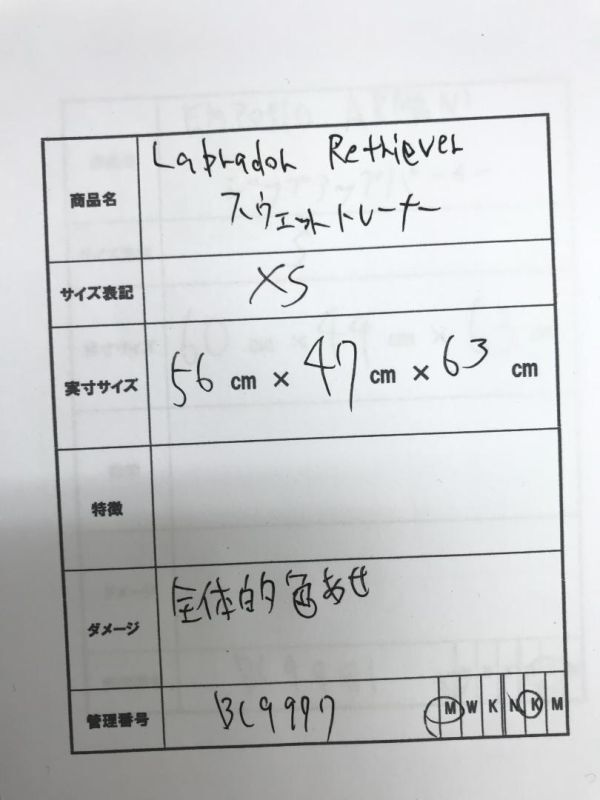 商品名 Labrador Retriever
スウェットトレーナー
サイズ表記 XS
実寸サイズ 56 cm × 47 cm × 63 cm
特徴
ダメージ 全体的色あせ
管理番号 BC9997 M W K N K M